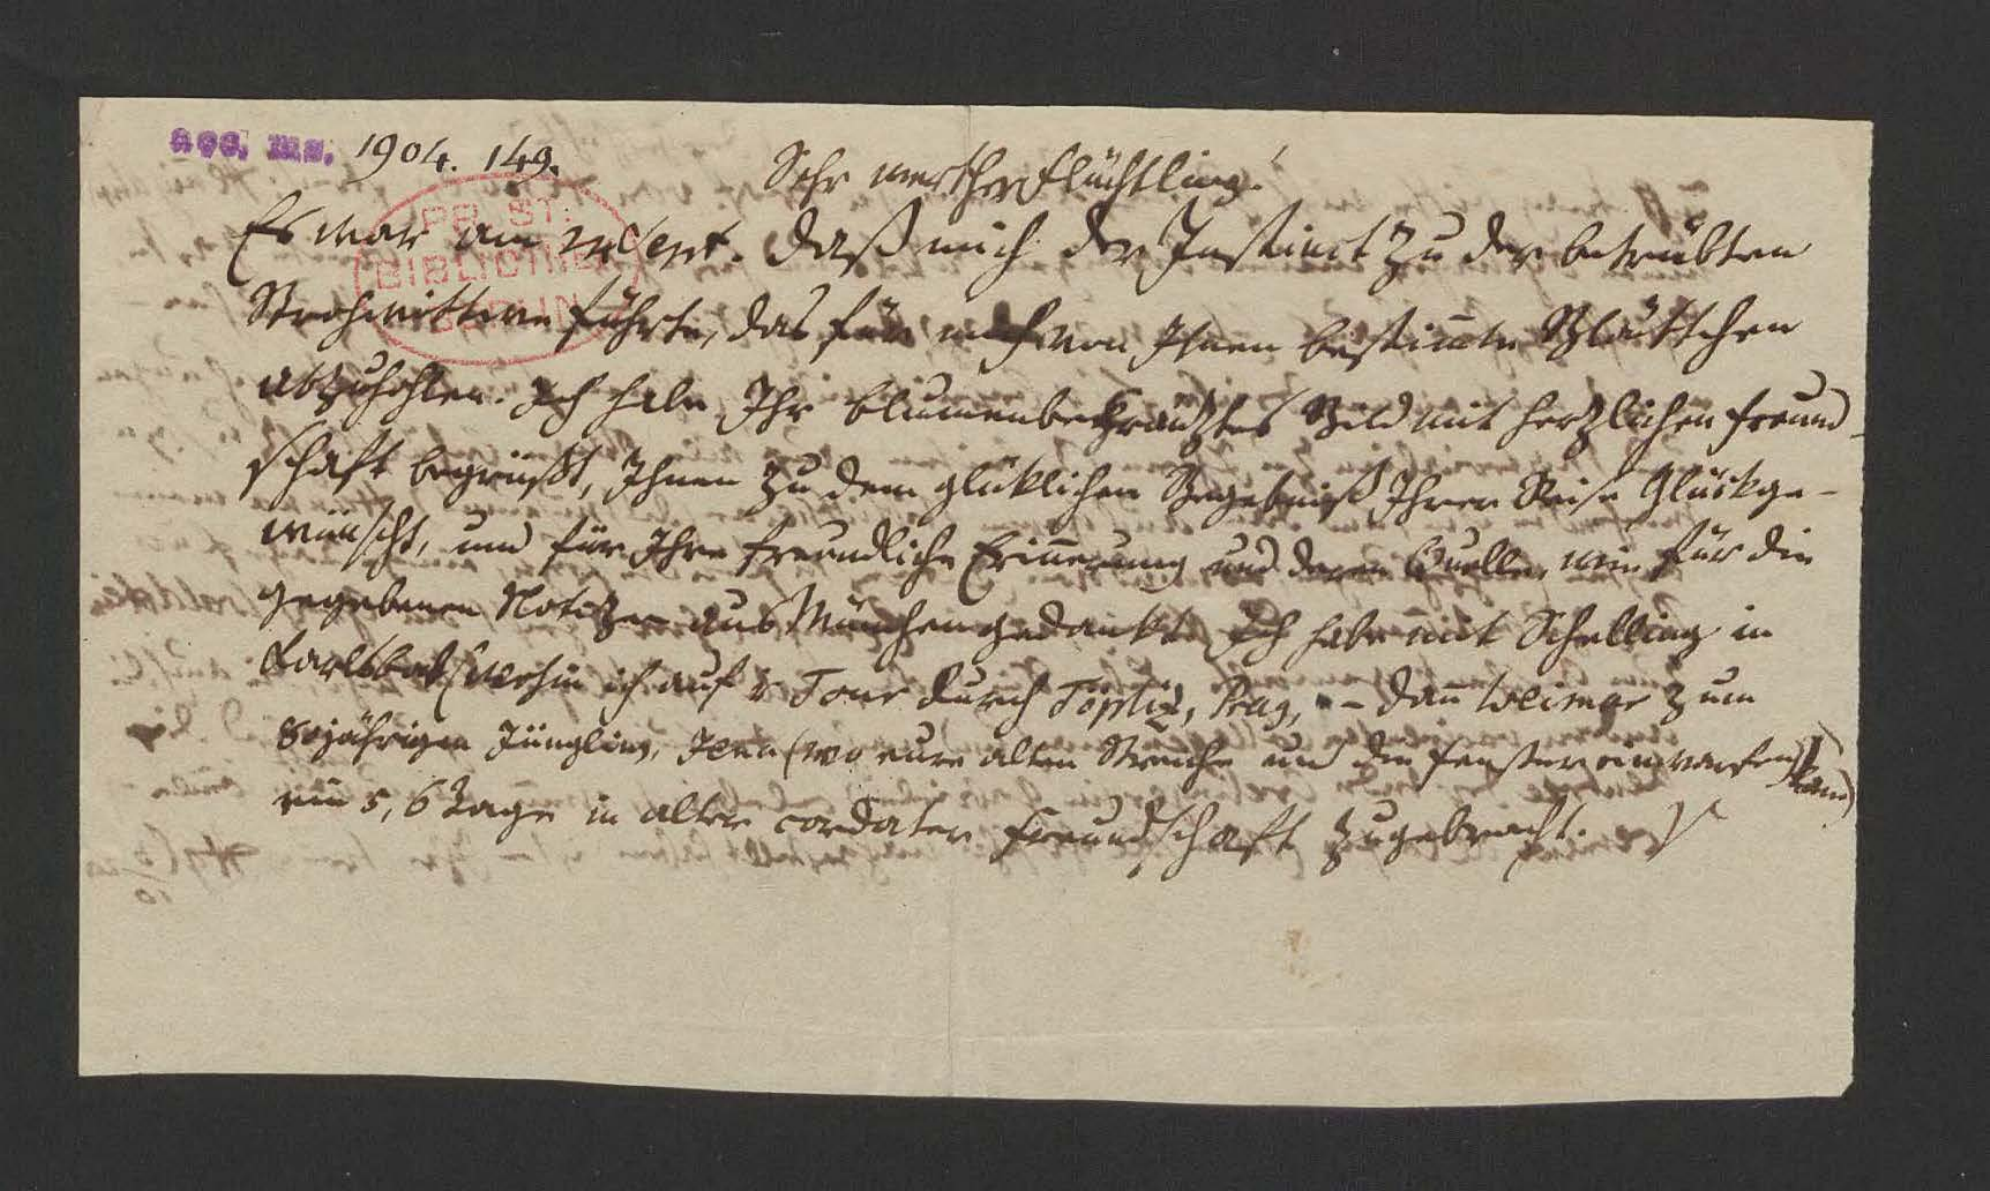 acc. ms. 1904. 149.
PR. ST.
BIBLIOTHEK
BERLIN
Sehr werther Flüchtling!
Es war am Sept. daß mich der Instinct zu der betrübten
Strohwittwe führte, das für mich von Ihnen bestim̅te Blättchen
abzuholen. Ich habe Ihr blumenbekräntztes Bild mit hertzlicher Freund-
schaft begrüßt, Ihnen zu dem glüklichen Begebniß Ihrer Reise Glückge-
wünscht, und für Ihre freundliche Erin̅erung und deren Quelle, wie für die
gegebenen Notizen aus München gedankt. Ich habe mit Schelling in
Karlsbad (wohin ich auf Tour durch Töplitz, Prag, – dan̅ Weimar zum
80jährigen Jüngling, Jena (wo eure alten Streiche und die Fenster einwarfen
kam)
nun 5, 6 Tage in alter cordater Freundschaft zugebracht.